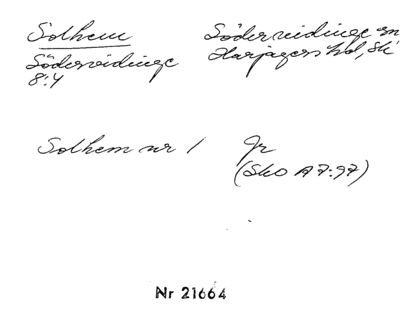 Solhem
Södervidinge
8:4
Södervidinge sn
Harjagers hd, Sk
Solhem nr 1 Jr
(SkO A 7:97)
Nr 21664